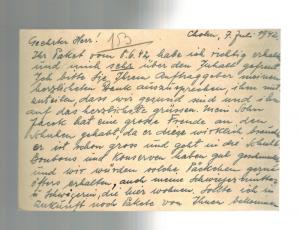 Cholm, 7. Juli 1942
Geehrter Herr! 153
Ihr Paket vom 8.6.42, habe ich richtig erhalten
und mich sehr über den Inhalt gefreut.
Ich bitte Sie, Ihrem Auftraggeber meinen
herzlichsten Dank auszusprechen, ihm mit
zuteilen, dass wir gesund sind und ihn
auf das herzlichste grüssen. Mein Sohn
hat eine grosse Freude an den
Schuhen gehabt, da er diese wirklich braucht
er ist schon gross und geht in die Schule.
Bonbons und Konserven haben gut geschmeckt
und wir würden solche Päckchen gerne
öfters erhalten, auch meine Schwiegermutter
u. Schwägerin, die hier wohnen. Sollte ich in
Zukunft noch Pakete von Ihnen bekommen